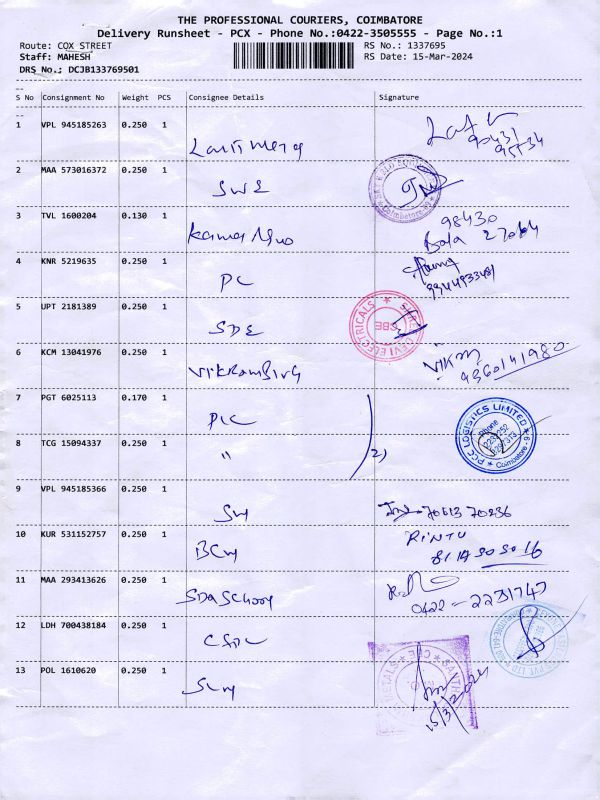 THE PROFESSIONAL COURIERS, COIMBATORE
Delivery Runsheet - PCX - Phone No.:0422-3505555 - Page No.:1
Route: COX STREET RS No.: 1337695
Staff: MAHESH RS Date: 15-Mar-2024
DRS No.; DCJB133769501
S No Consignment No Weight PCS Consignee Details Signature
1 VPL 945185263 0.250 1
90431
95734
2 MAA 573016372 0.250 1 SWE
Coimbatore
3 TVL 1600204 0.130 1
98430
Bala 27064
4 KNR 5219635 0.250 1 PC
9944933481
5 UPT 2181389 0.250 1 SDE
SHREE DEVI ELECTRICALS CBE
6 KCM 13041976 0.250 1
VIKM
9360141980
7 PGT 6025113 0.170 1 PLC
PCC LOGISTICS LIMITED
Phone
Coimbatore - 6
8 TCG 15094337 0.250 1 " 2)
9 VPL 945185366 0.250 1
70613 70236
10 KUR 531152757 0.250 1 BCM
RINTU
11 MAA 293413626 0.250 1 SDA School
0422 - 2231747
12 LDH 700438184 0.250 1
13 POL 1610620 0.250 1
METALS
15/3/2024